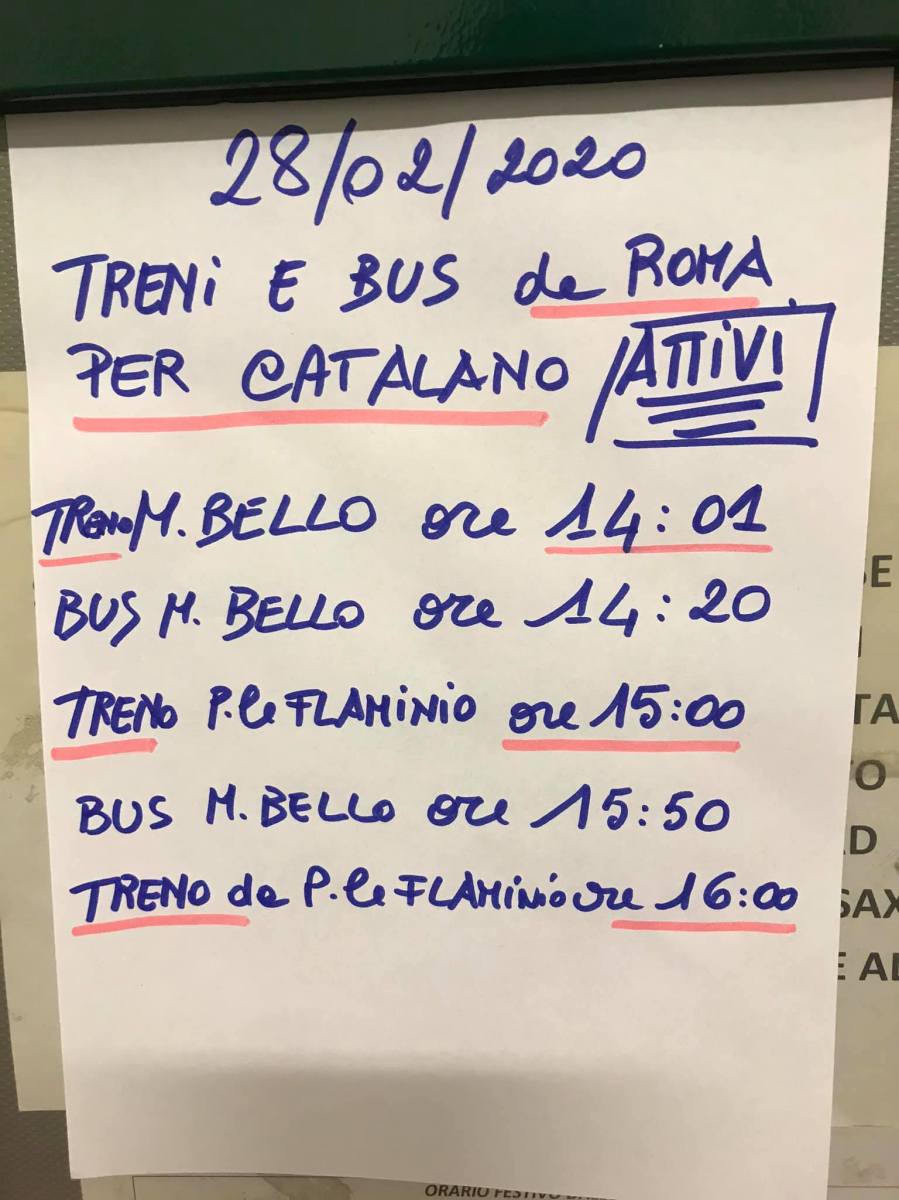 28/02/2020
TRENi E BUS da ROMA
PER CATALANO ATTIVI
TRENO M. BELLO ore 14:01
BUS M. BELLO ore 14:20
TRENO P.le FLAMiNiO ore 15:00
BUS M. BELLO ore 15:50
TRENO da P.le FLAMiNiO ore 16:00
TA
TO
AD
SAX
E AD
ORARIO FESTIVO